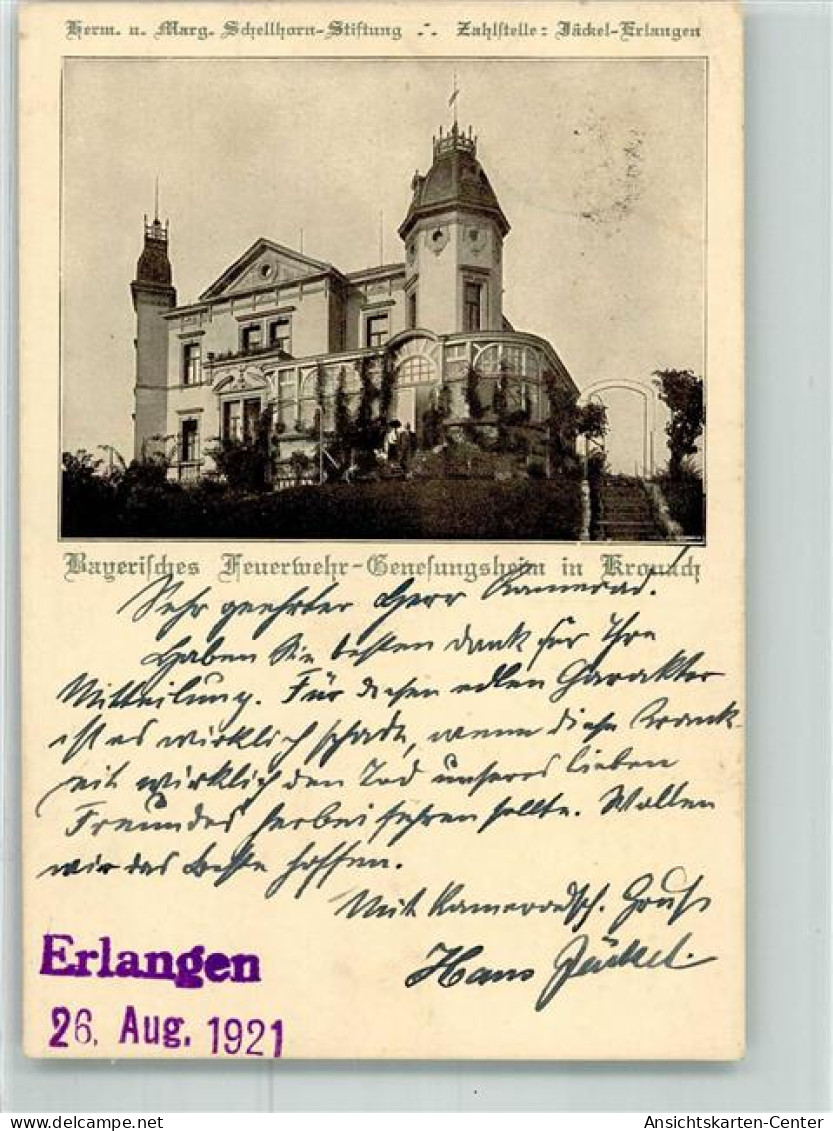 Herm. u. Marg. Schellhorn-Stiftung .·. Zahlstelle: Jäckel-Erlangen
Bayerisches Feuerwehr-Genesungsheim in Kronach
Sehr geehrter Herr Kamerad.
Haben Sie besten Dank für Ihre
Mitteilung. Für diesen edlen Charakter
ist es wirklich schade, wenn diese Krank-
heit wirklich den Tod unseres lieben
Freundes herbeiführen sollte. Wollen
wir das Beste hoffen.
Mit kameradsch. Gruß
Hans Jäckel.
Erlangen
26. Aug. 1921
Ansichtskarten-Center